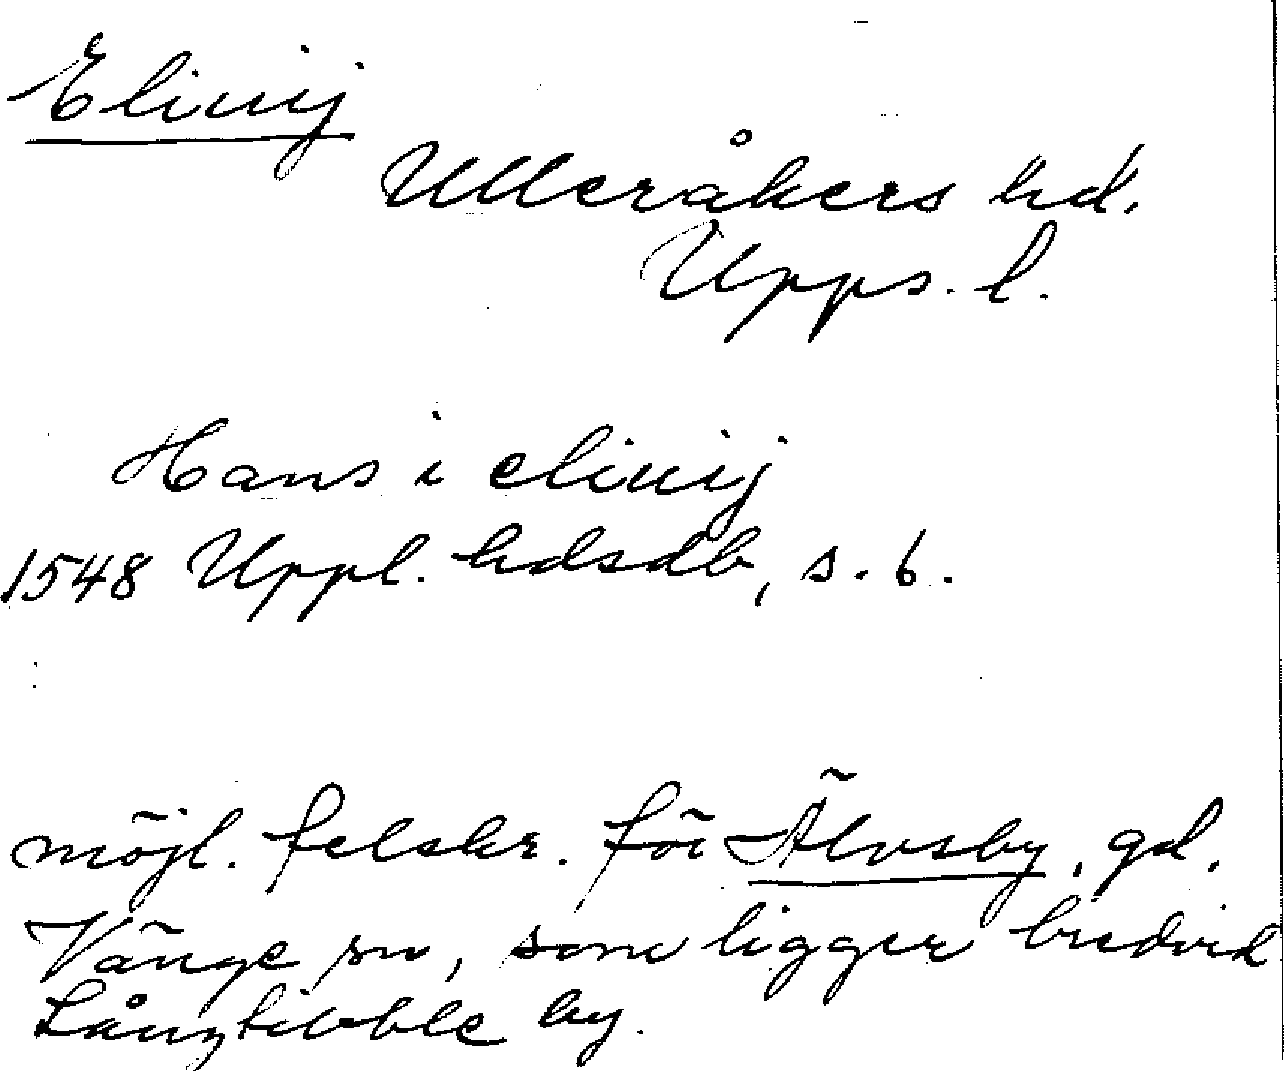 Elinij
Ulleråkers hd.
Upps. l.
Hans i elinij
1548 Uppl. hdsdb, s. 6.
möjl. felskr. för Älvsby, gd,
Vänge sn, som ligger bredvid
Långtibble by.